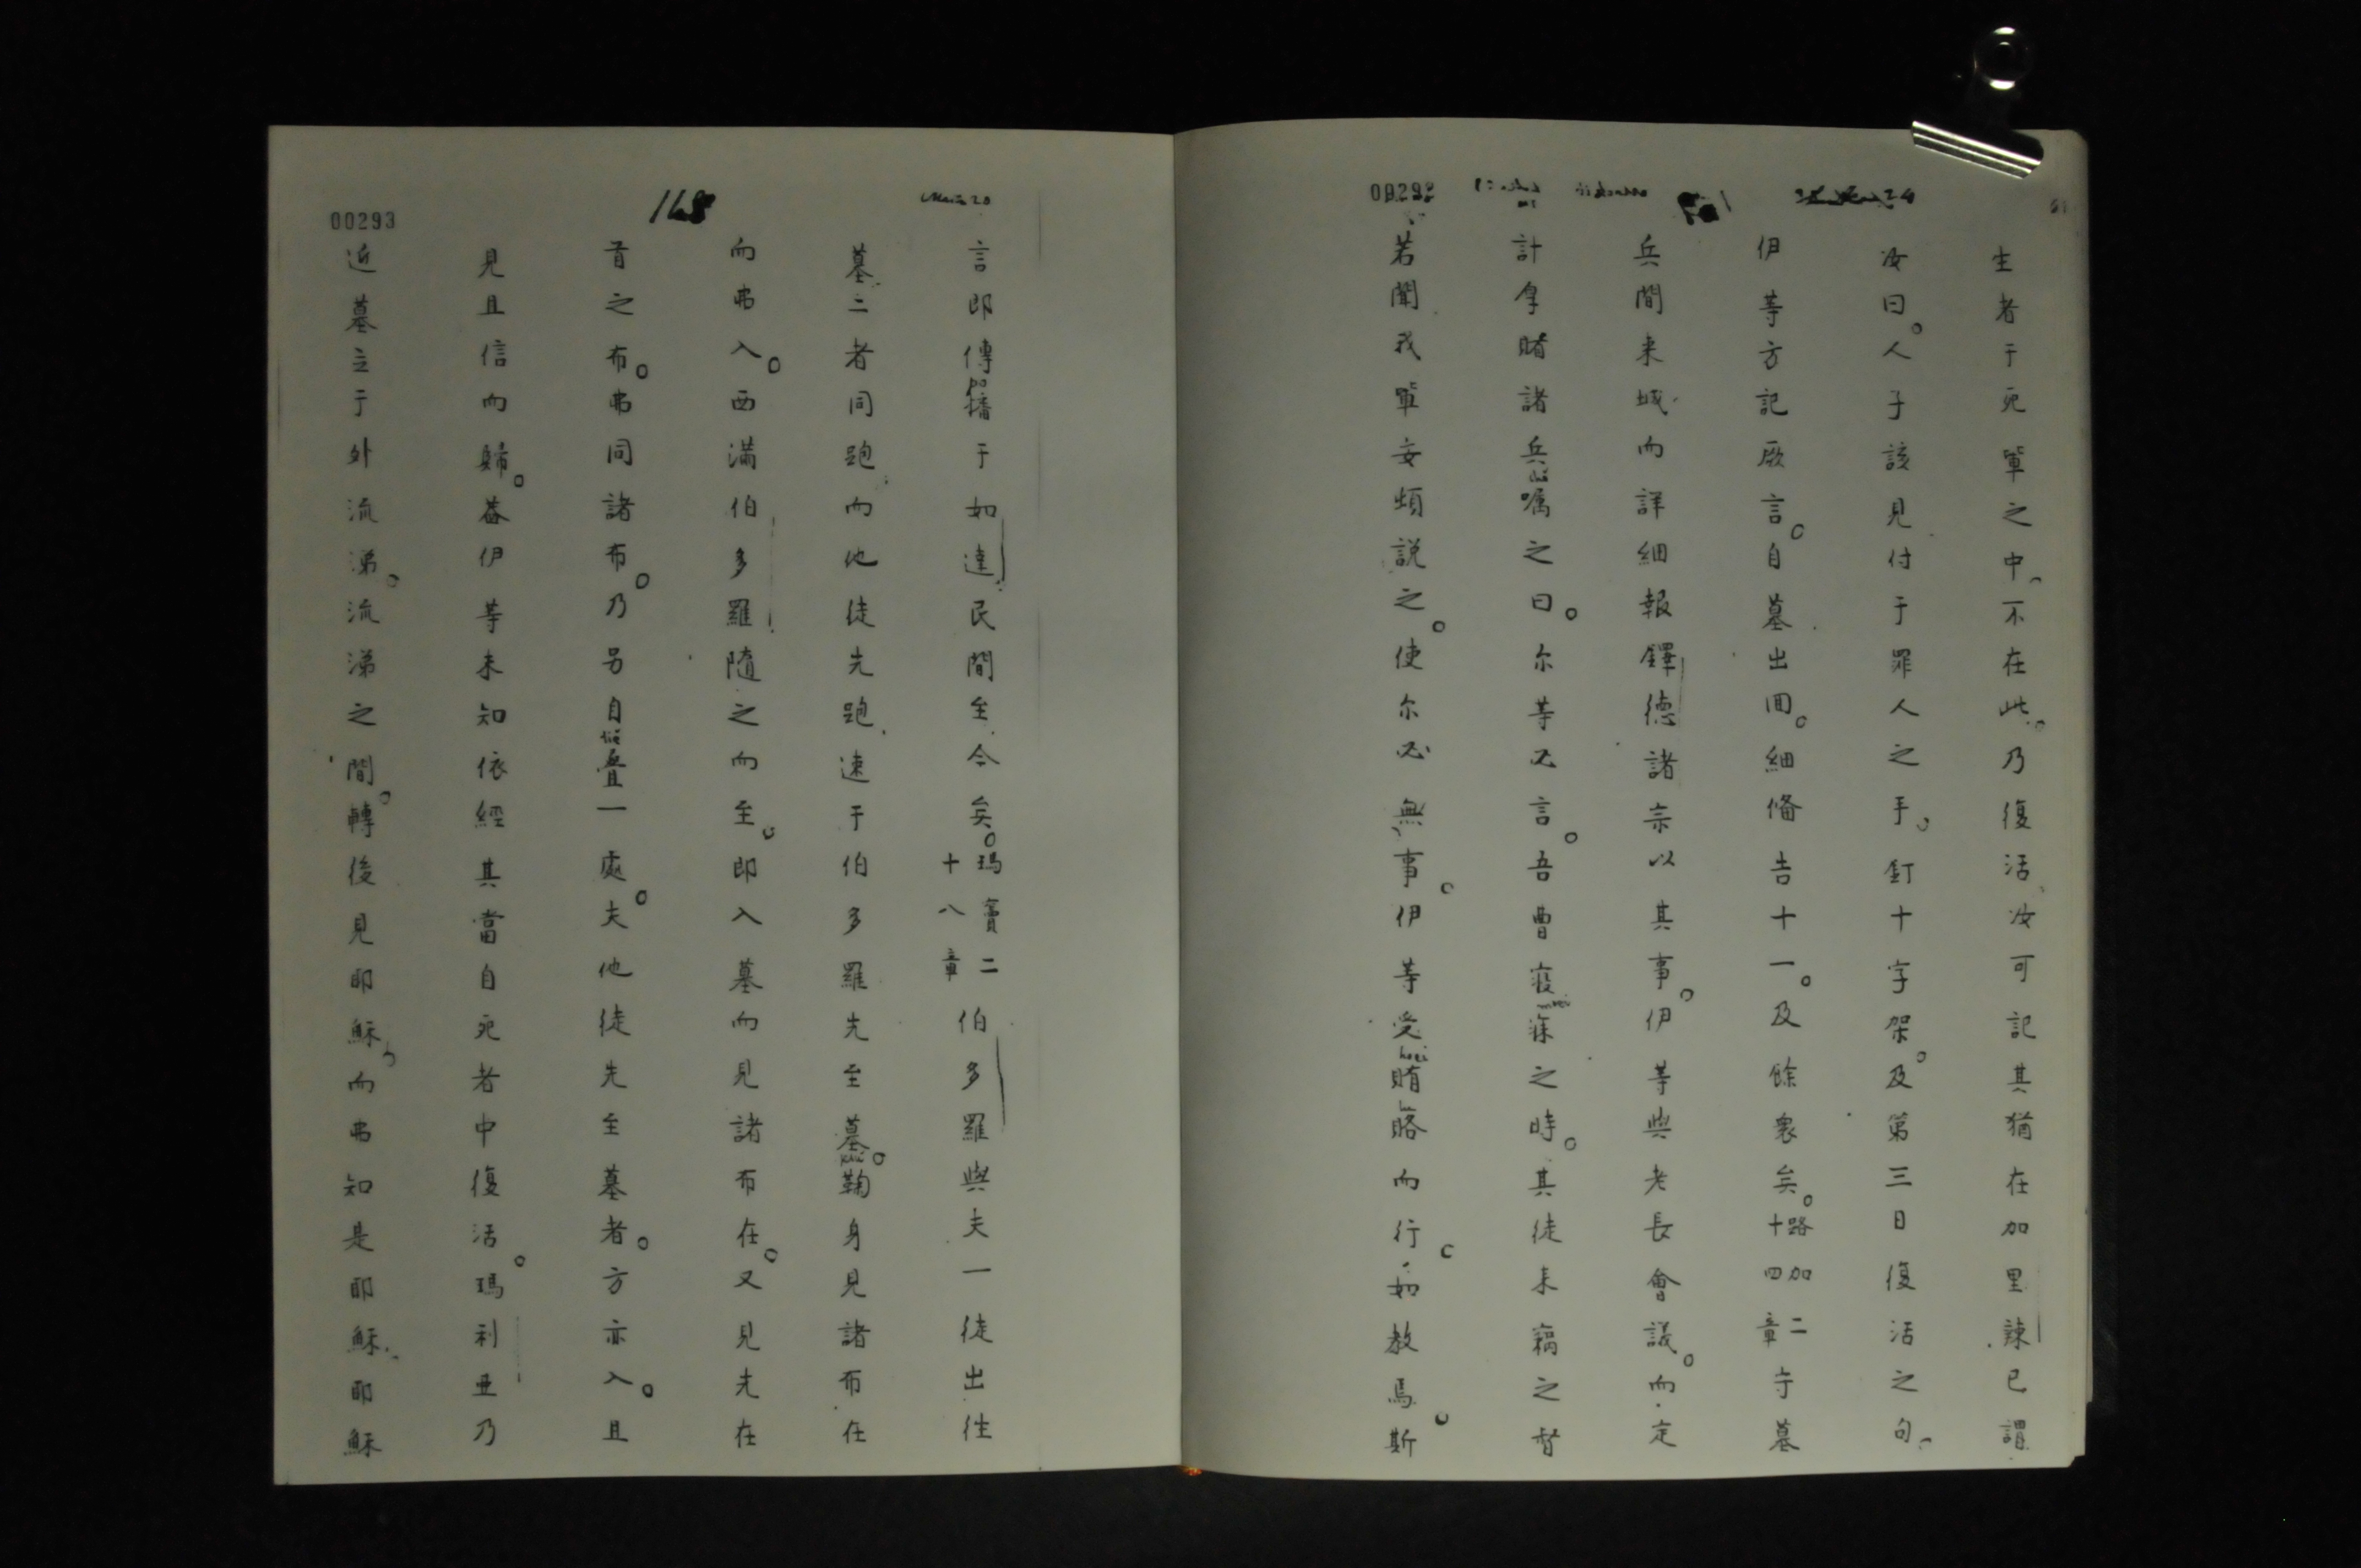 00292
24
生者于死單之中不在此。乃復活汝可記其猶在加里辣已謂
汝曰。人子該見付于罪人之手。釘十字架。及第三日復活之句
伊等方記厥言。自墓出囬。細俻告十一。及餘衆矣。路加二十四章守墓
兵間来城而詳細報鐸德諸宗以其事。伊等與老長會議。而定
計拿賭諸兵嘱之曰。尔等必言。吾曹寢寐之時。其徒来竊之督
若聞我單妄煩説之。使尔必無事。伊等受賄賂而行。如教焉。斯
168
00293
言即傳播于如達民間至今矣。瑪竇二十八章伯多羅與夫一徒出往
墓二者同跑而他徒先跑速于伯多羅先至墓。鞠身見諸布在
而弗入。西満伯多羅随之而至。即入墓而見諸布在。又見先在
首之布。弗同諸布。乃另自叠一處。夫他徒先至墓者。方亦入。且
見且信而歸。葢伊等未知依經其當自死者中復活。瑪利亜乃
近墓立于外流涕。流涕之間。轉後見耶穌而弗知是耶穌耶穌